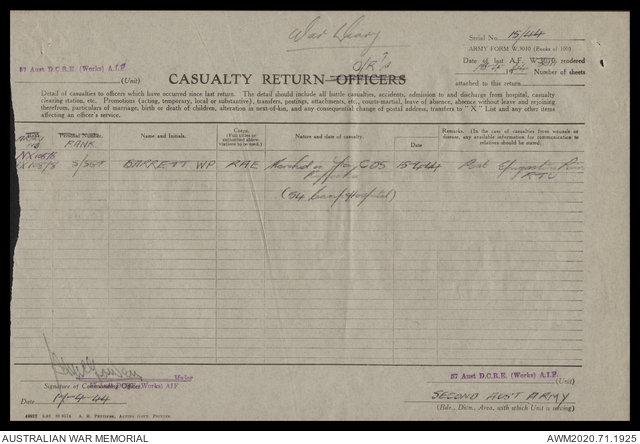 War Diary
Serial No. 15/44
ARMY FORM W.3010 (Books of 100)
57 Aust D.C.R.E. (Works) A.I.F.
(Unit)
O/R's
CASUALTY RETURN—OFFICERS
Date of last A.F. W.3010 rendered
Number of sheets
attached to this return
Detail of casualties to officers which have occurred since last return. The detail should include all battle casualties, accidents, admission to and discharge from hospital, casualty
clearing station, etc. Promotions (acting, temporary, local or substantive), transfers, postings, attachments, etc., courts-martial, leave of absence, absence without leave and rejoining
therefrom, particulars of marriage, birth or death of children, alteration in next-of-kin, and any consequential change of postal address, transfers to "X" List and any other items
affecting an officer's service.
ARMY No
Personal Number.
RANK
Name and Initials.
Corps.
Nature and date of casualty.
Date
Remarks. (In the case of casualties from wounds or
disease, any available information for communication to
relatives should be stated.
S/SGT BARRETT WP RAE Marched in from GDS 15-4-44 Post
(54 Camp Hospital)
Major
Signature of Commanding Officer
57 Aust D.C.R.E. (Works) AIF
Date 17-4-44
57 Aust D.C.R.E. (Works) A.I.F.
(Unit)
SECOND AUST ARMY
(Bde., Divn., Area, with which Unit is serving)
AUSTRALIAN WAR MEMORIAL
AWM2020.71.1925